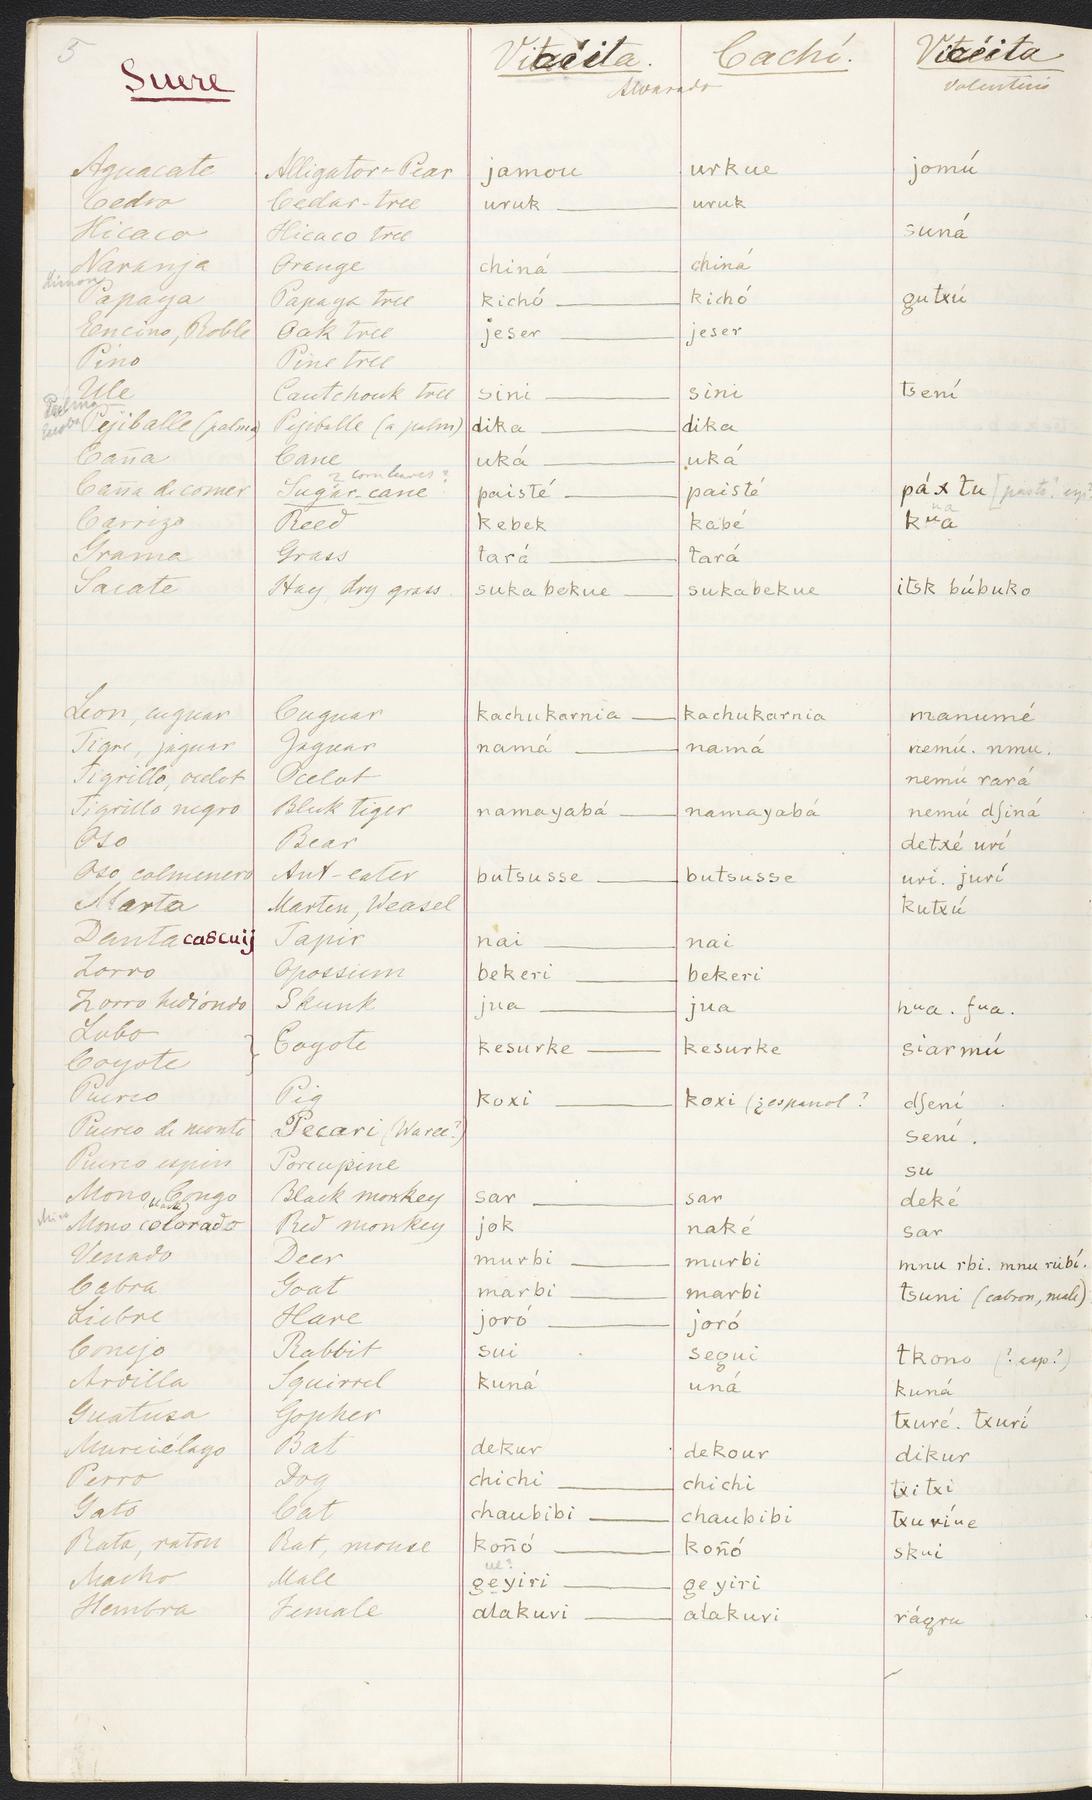 5
Suere Viceita. Cachí. Viceita
Alvarado Valentini
Aguacate Alligator-Pear jamou urkue jomú
Cedro Cedar-tree uruk uruk
Hicaco Hicaco tree suná
Naranja Orange chiná chiná
Limon
Papaya Papaya tree kichó kichó gutxú
Encino, Roble Oak tree jeser jeser
Pino Pine tree
Ule Cautchouk tree sini sini tsení
Pejiballe (palma) Pejiballe (a palm) dika dika
Caña Cane uká uká
Caña de comer Sugar-cane paisté paisté páx tu
Carrizo Reed kebek kabé kua
Grama Grass tará tará
Sacate Hay, dry grass sukabekue sukabekue itsk búbuko
Leon, cuguar Cuguar kachukarnia kachukarnia manumé
Tigre, jaguar Jaguar namá namá nemú. nmu.
Tigrillo, ocelot Ocelot nemú rará
Tigrillo negro Black tiger namayabá namayabá nemú dſiná
Oso Bear detxé urí
Oso colmenero Ant-eater butsusse butsusse uri. jurí
Marta Marten, Weasel kutxú
Danta cascuij Tapir nai nai
Zorro Opossium bekeri bekeri
Zorro hediondo Skunk jua jua hua. fua.
Lobo
Coyote Coyote kesurke kesurke siarmú
Puerco Pig koxi koxi (¿espanol? dſení
Puerco de monte Pecari (Waree?) sení.
Puerco espin Porcupine su
Mono, Congo Black monkey sar sar deké
Mono colorado Red monkey jok naké sar
Venado Deer murbi murbi mnu rbi. mnu rúbí.
Cabra Goat marbi marbi tsuni (cabron, male)
Liebre Hare joró joró
Conejo Rabbit sui segui tkono (? esp?)
Ardilla Squirrel kuná uná kuná
Guatusa Gopher txuré. txurí
Murciélago Bat dekur dekour dikur
Perro Dog chichi chichi txitxi
Gato Cat chaubibi chaubibi txuríue
Rata, raton Rat, mouse koñó koñó skui
ue?
Macho Male geyiri geyiri
Hembra Female alakuri alakuri rágru